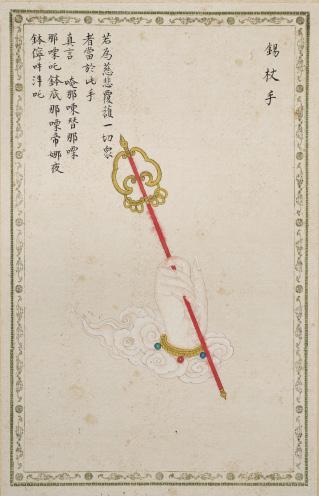 錫杖手
若為慈悲覆護一切眾
者當於此手
真言 唵那㗚智那㗚
那㗚吒鉢底那㗚帝娜夜
鉢儜吽泮吒